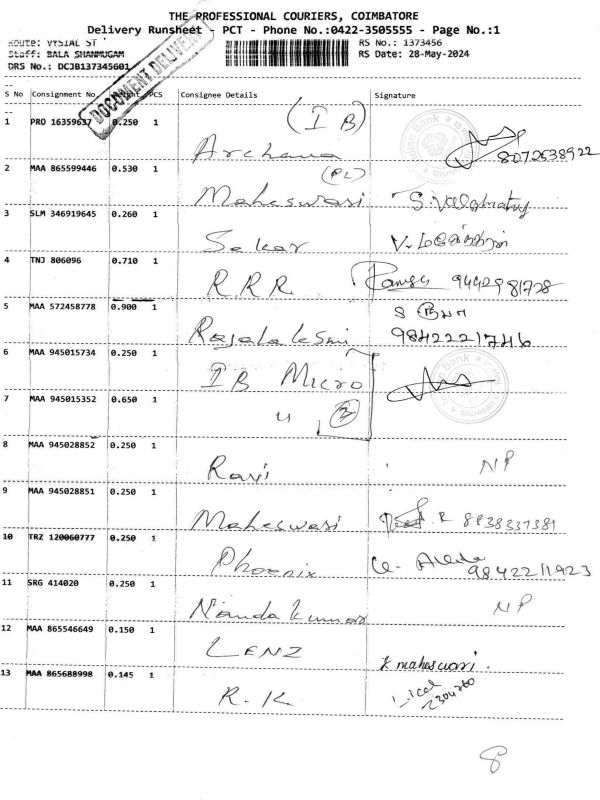 THE PROFESSIONAL COURIERS, COIMBATORE
Delivery Runsheet - PCT - Phone No.:0422-3505555 - Page No.:1
Route: VYSIAL ST RS No.: 1373456
Staff: BALA SHANMUGAM RS Date: 28-May-2024
DRS No.: DCJB137345601
DOCUMENT DELIVERY
S No Consignment No. Weight PCS Consignee Details Signature
(I B)
1 PRO 16359637 0.250 1 Archana 8072638922
(PL)
2 MAA 865599446 0.530 1 Maheswari
3 SLM 346919645 0.260 1 Sekar
4 TNJ 806096 0.710 1 R.R.R.
5 MAA 572458778 0.900 1 Rajalakshmi 9842221746
6 MAA 945015734 0.250 1 IB Micro
7 MAA 945015352 0.650 1 4
8 MAA 945028852 0.250 1 Ravi NP
9 MAA 945028851 0.250 1 Maheswari
10 TRZ 120060777 0.250 1 Phoenix
11 SRG 414020 0.250 1 Nandakumar NP
12 MAA 865546649 0.150 1 LENZ K maheswari.
13 MAA 865688998 0.145 1 R.K. 2304760
8